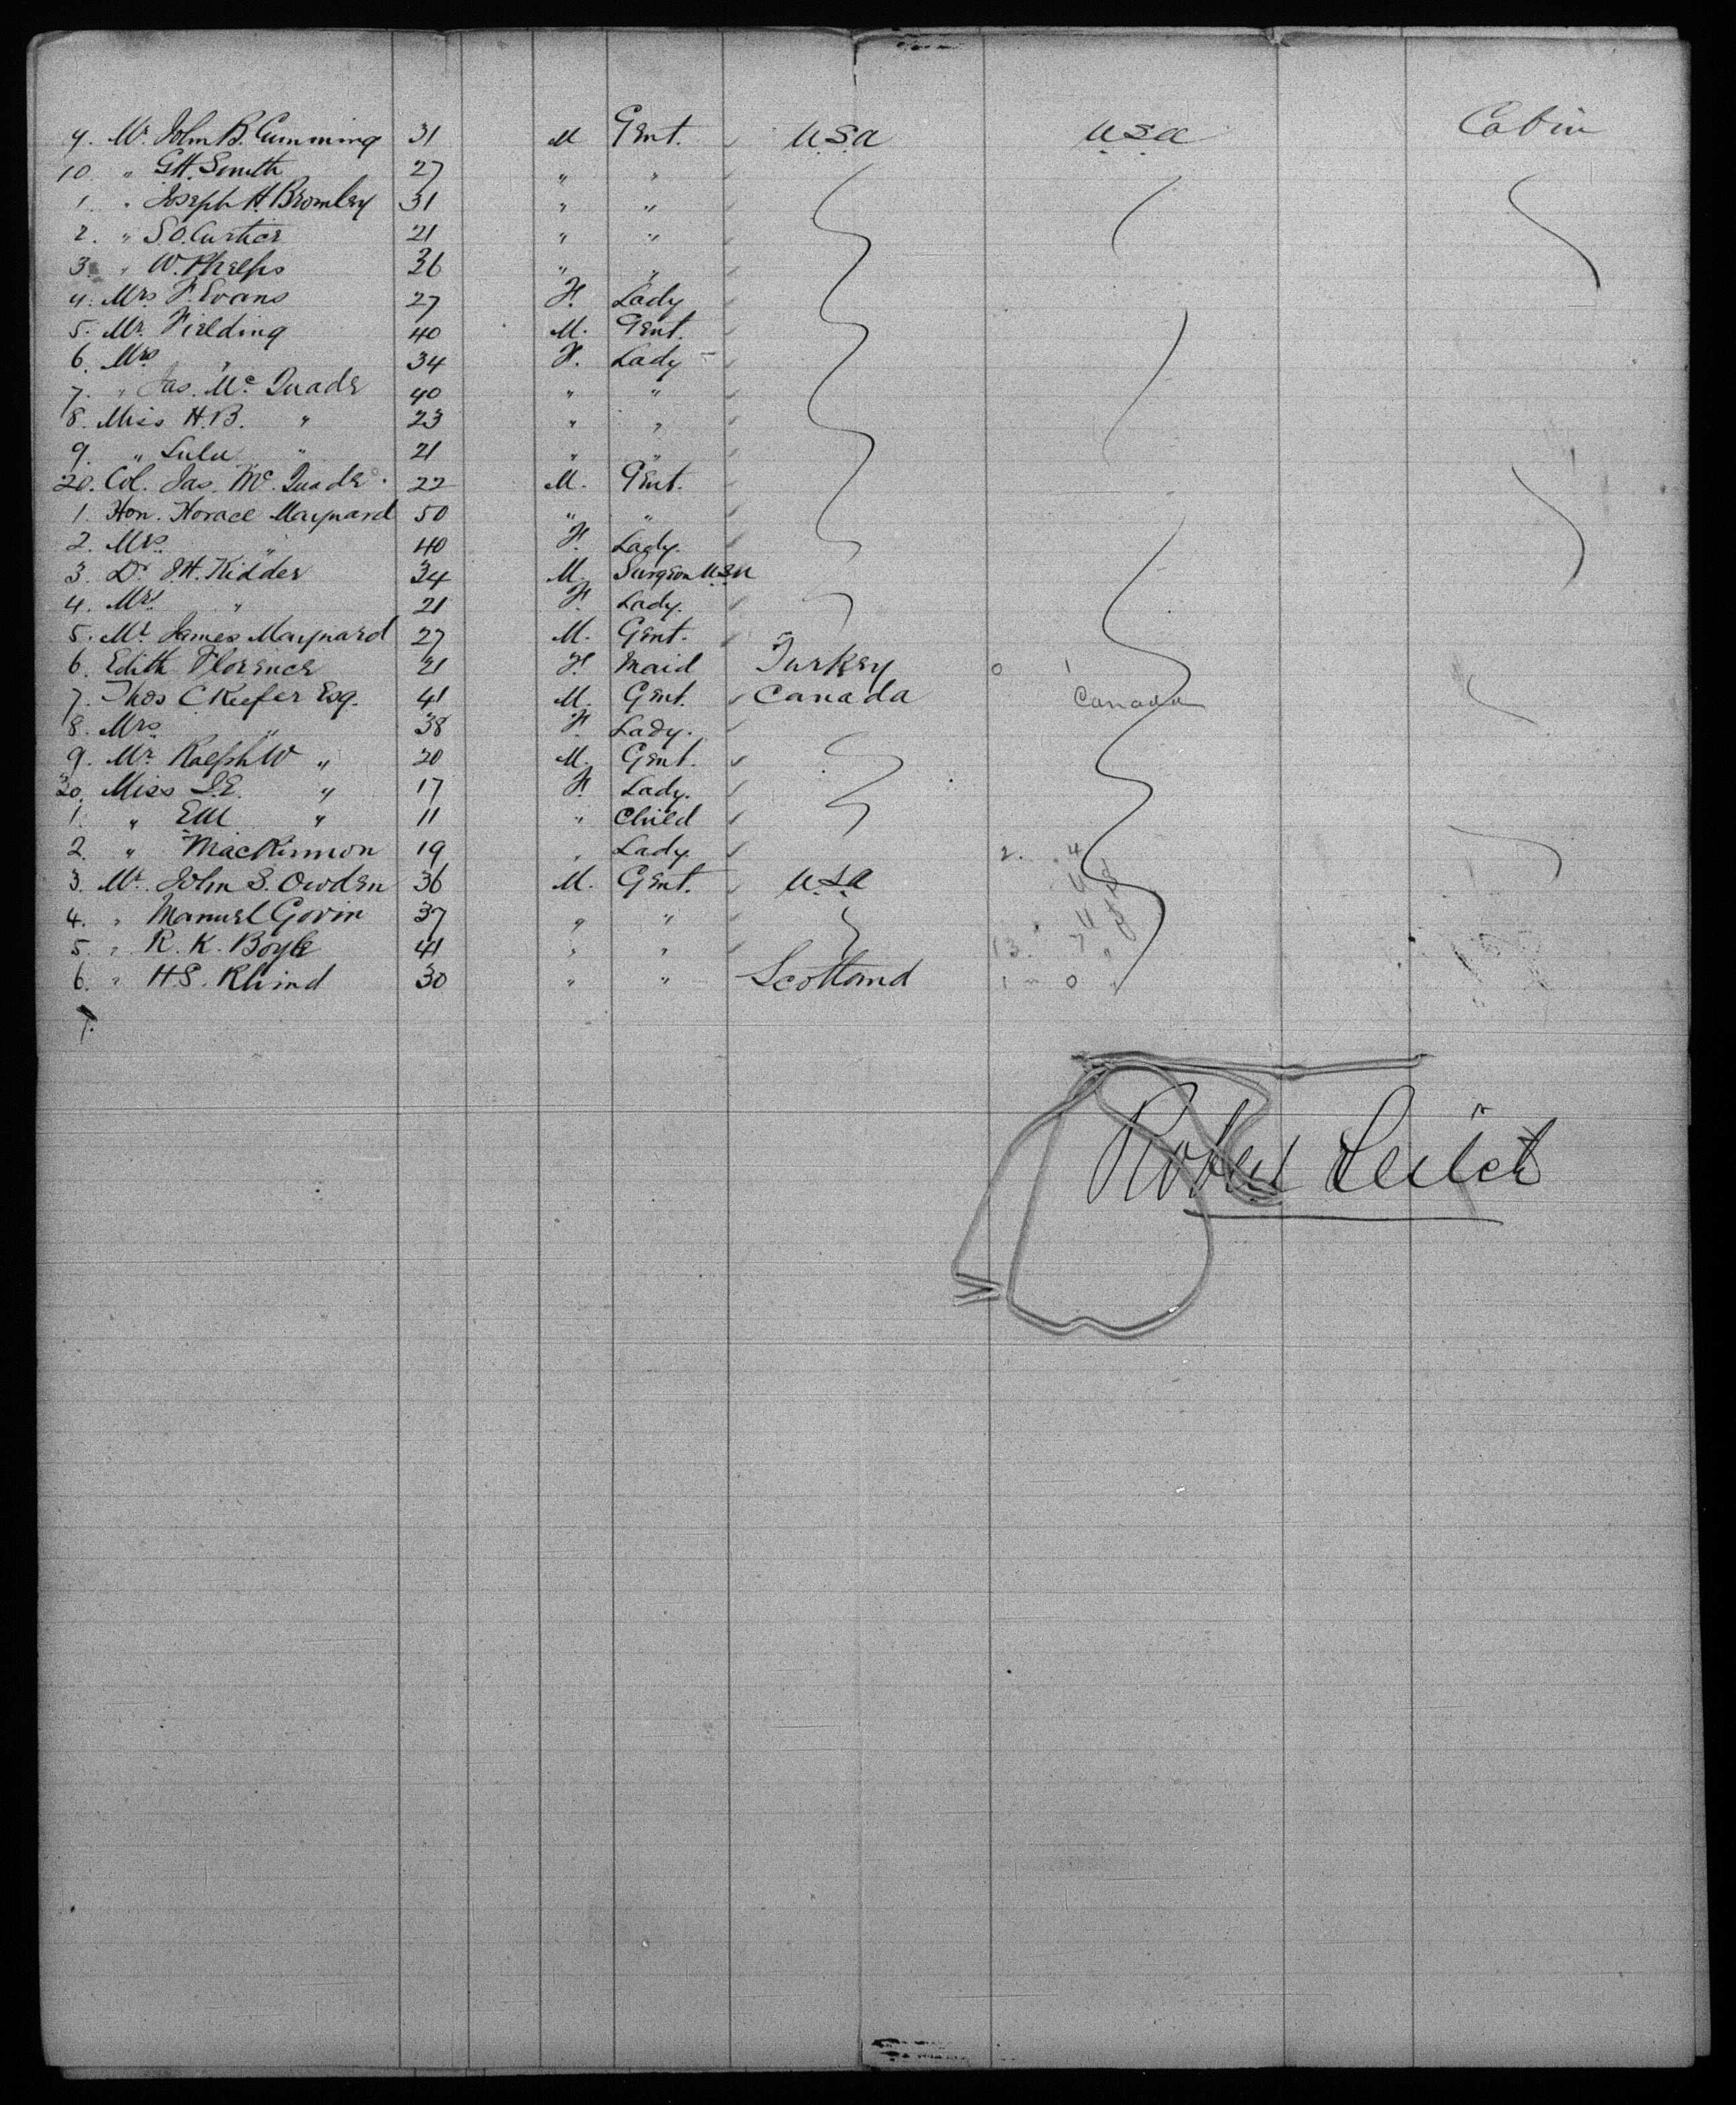 9. Mr. John B. Cumming 31 M Gent. U.S.A U.S.A Cabin
10. " G.H. Smith 27 " "
1. " Joseph H. Bromley 31 " "
2. " S.O. Curtice 21 " "
3. " W. Phelps 26 " "
4. Mrs. F. Evans 27 F. Lady
5. Mr. Fielding 40 M. Gent.
6. Mrs. " 34 F. Lady
7. " Jas. Mc. Quade 40 " "
8. Miss H.B. " 23 " "
9. " Lulu " 21 " "
20. Col. Jas. Mc. Quade 22 M. Gent.
1. Hon. Horace Maynard 50 " "
2. Mrs. " 40 F. Lady.
3. Dr. J.H. Kidder 34 M. Surgeon U.S.N
4. Mrs. " 21 F. Lady.
5. Mr. James Maynard 27 M. Gent.
6. Edith Florence 21 F. Maid Turkey 0 1
7. Thos C Keefer Esq. 41 M. Gent. Canada Canada
8. Mrs. " 38 F. Lady.
9. Mr. Ralph W " 20 M. Gent.
30. Miss L.E. " 17 F. Lady.
1. " E.M " 11 " Child
2. " MacKinnon 19 " Lady 2. 4
3. Mr. John S. Owden 36 M. Gent. U.S.A
4. " Manuel Govin 37 " "
5. " R. K. Boyle 41 " " 13. 7 "
6. " H.S. Rhind 30 " " Scotland 1 0 "
7.
Robert Leitch